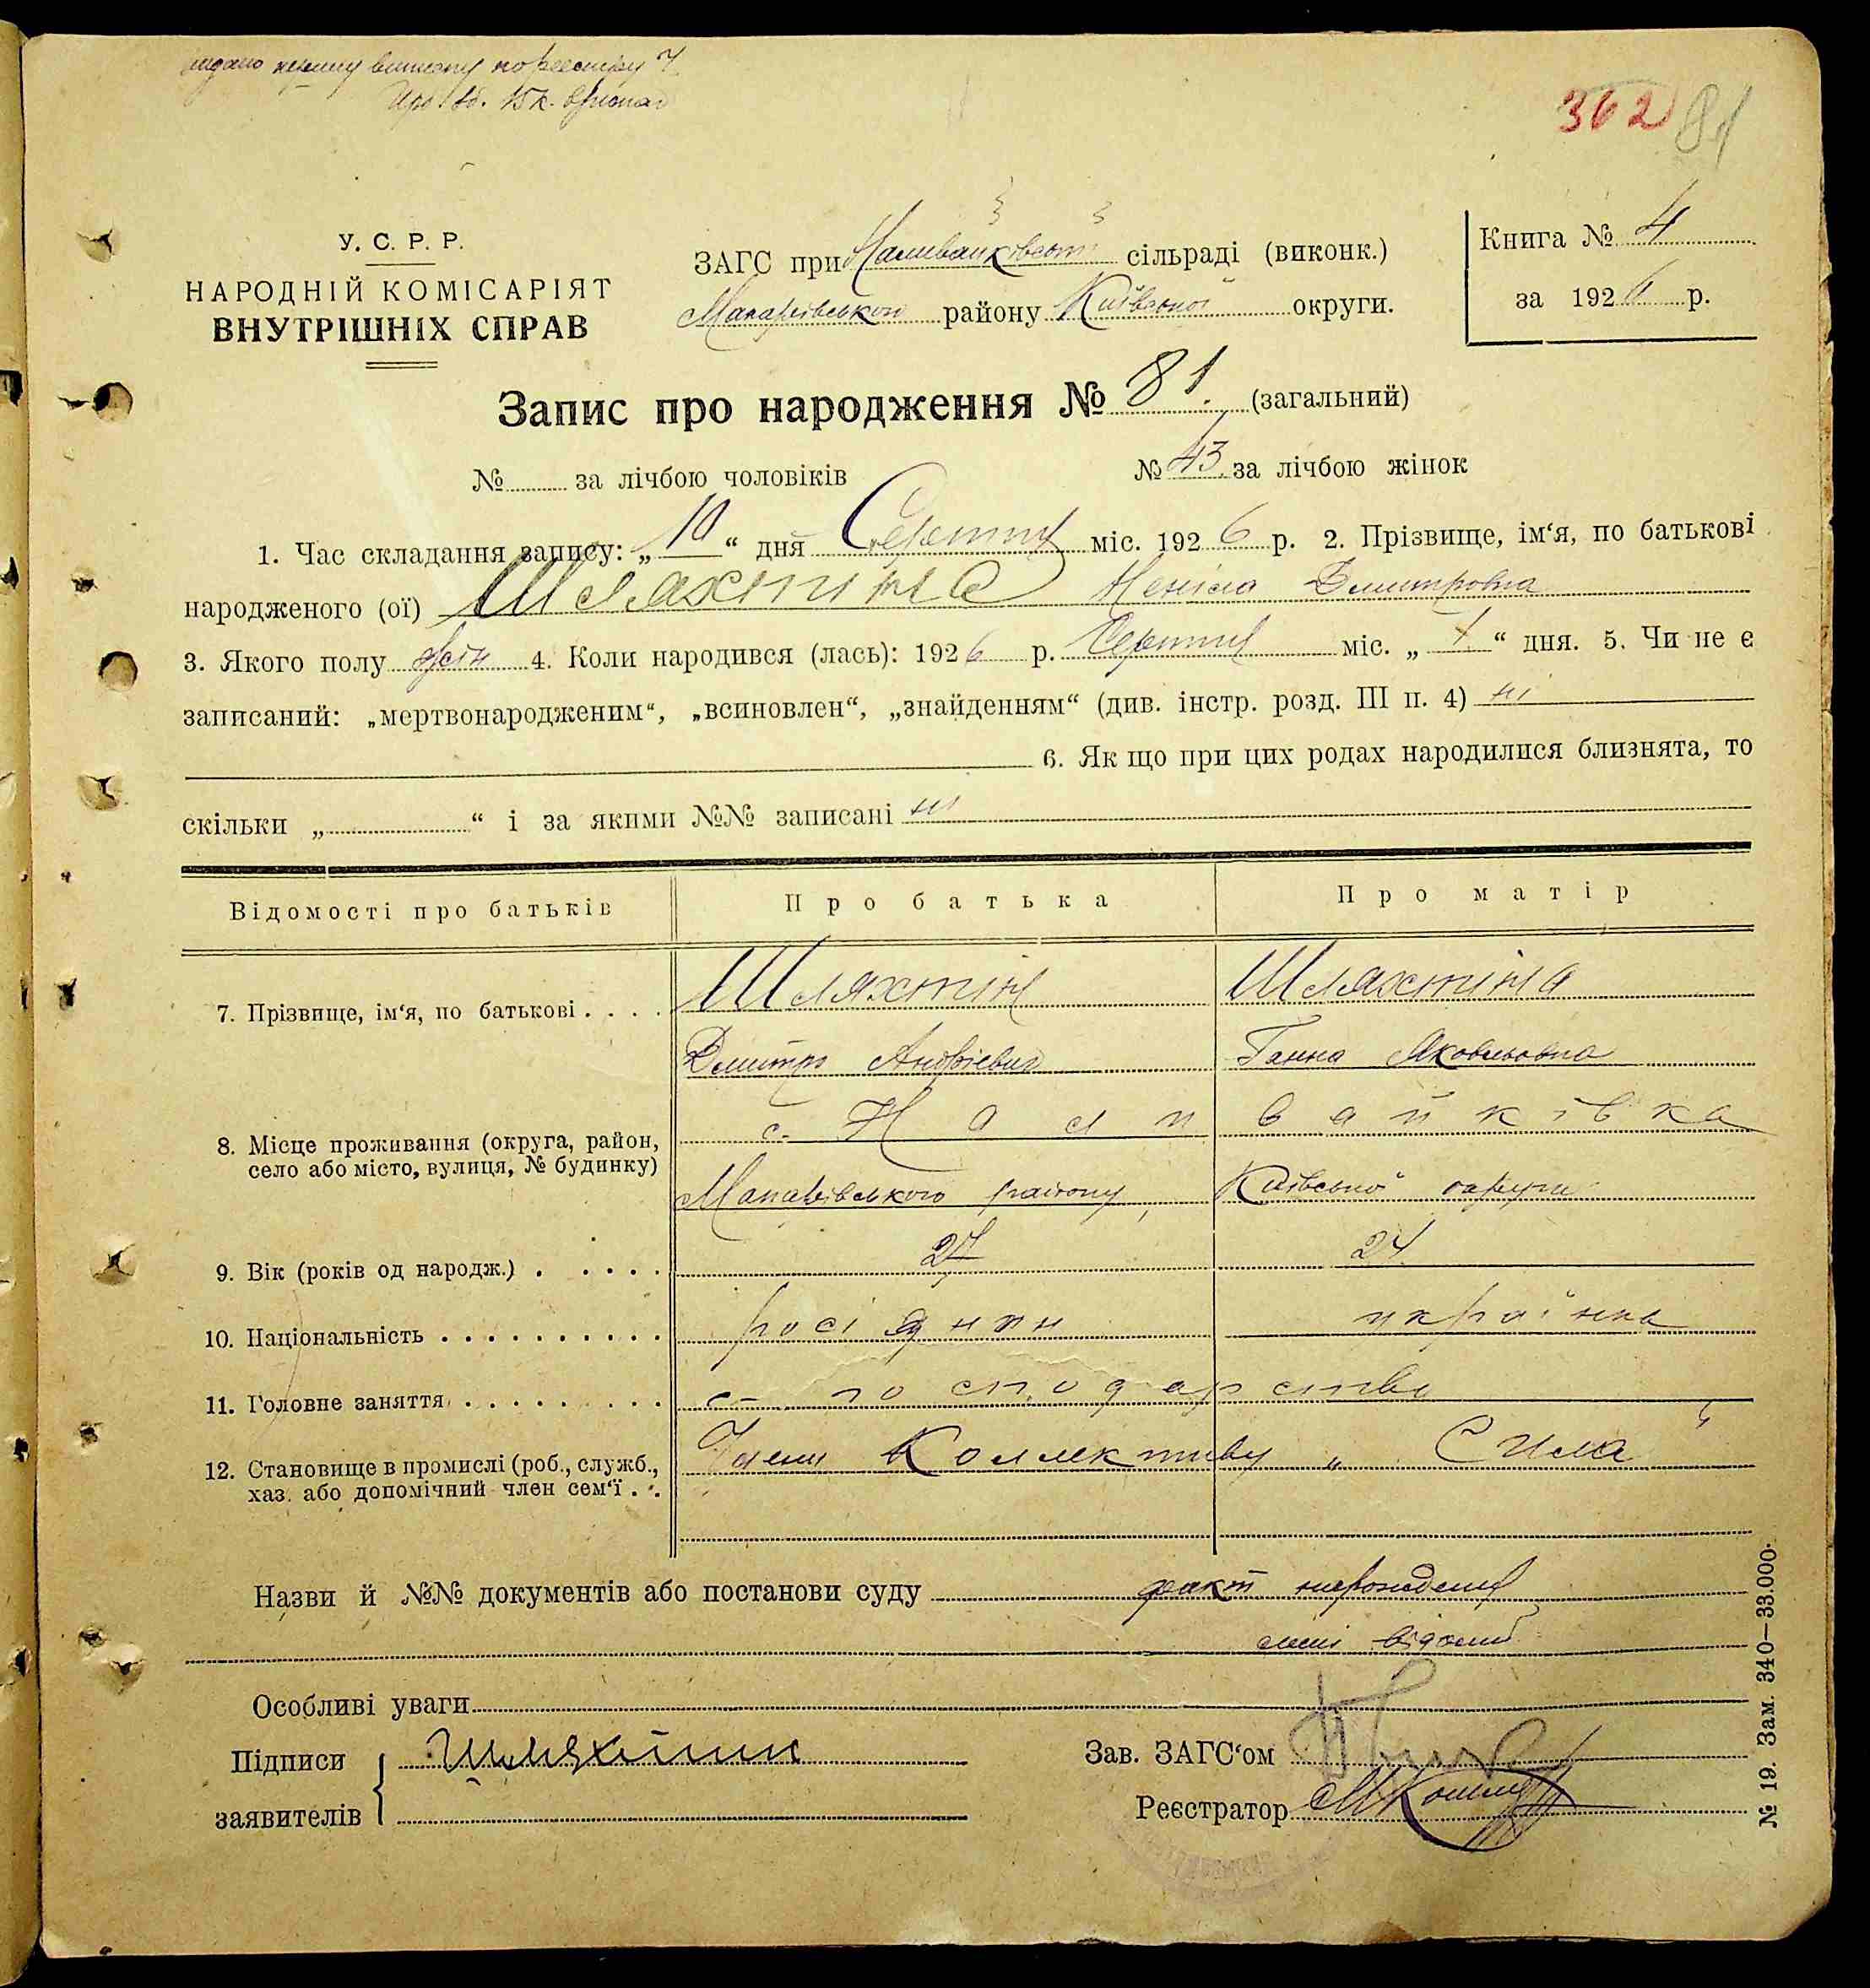 видано першу виписку по реєстру
362 81
У. С. Р. Р.
НАРОДНІЙ КОМІСАРІЯТ
ВНУТРІШНІХ СПРАВ
ЗАГС при Наливайківській сільраді (виконк.)
Макарівського району Київської округи.
Книга № 4
за 1926 р.
Запис про народження № 81. (загальний)
№ за лічбою чоловіків № 43 за лічбою жінок
1. Час складання запису: „10“ дня Серпня міс. 1926 р. 2. Прізвище, ім‘я, по батькові
народженого (ої) Шляхтина Неніла Дмитровна
3. Якого полу жін 4. Коли народився (лась): 1926 р. Серпня міс. „ “ дня. 5. Чи не є
записаний: „мертвонародженим“, „всиновлен“, „знайденням“ (див. інстр. розд. III п. 4) ні
6. Як що при цих родах народилися близнята, то
скільки „ “ і за якими №№ записані ні
Відомості про батьків Про батька Про матір
7. Прізвище, ім‘я, по батькові . . . . Шляхтін Шляхтіна
Дмитро Андрієвич Ганна Яковльовна
8. Місце проживання (округа, район, село або місто, вулиця, № будинку) с. Наливайківка
Макарівського району, Київської округи
9. Вік (років од народж.) . . . . . 27 24
10. Національність . . . . . . . . . . росіянин українка
11. Головне заняття . . . . . . . . . с-господарство
12. Становище в промислі (роб., служб., Члени Коллективу „Сила“
хаз. або допомічний член сем‘ї . .
Назви й №№ документів або постанови суду факт народження
мені відомий
Особливі уваги
Підписи Шляхтин Зав. ЗАГС‘ом
заявителів Реєстратор
№ 19. Зам. 340—33.000.